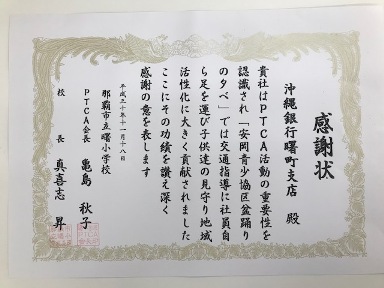 感謝状
沖縄銀行曙町支店 殿
貴社はPTCA活動の重要性を
認識され「安岡青少協区盆踊り
の夕べ」では交通指導に社員自
ら足を運び子供達の見守り地域
活性化に大きく貢献されました
ここにその功績を讃え深く
感謝の意を表します
平成三十年十一月十八日
那覇市立曙小学校
PTCA会長 亀島 秋子
校長 真喜志 昇